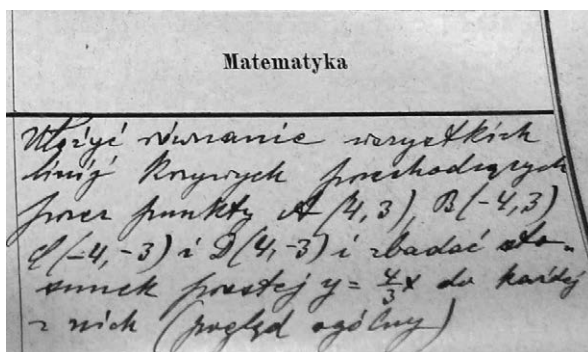 Matematyka
Ułożyć równanie wszystkich
linij krzywych przechodzących
przez punkty A(4,3), B(-4,3)
C(-4,-3) i D(4,-3) i zbadać sto-
sunek prostej y = 4/3 x do każdej
z nich (pogląd ogólny)